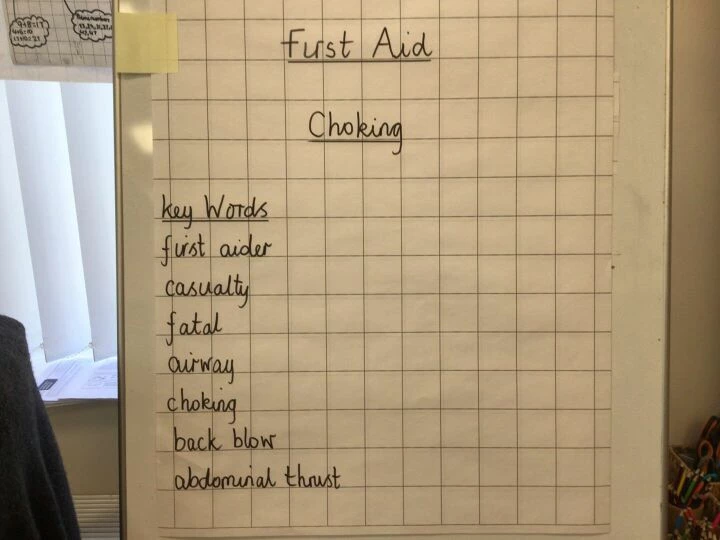 First Aid
Choking
key Words
first aider
casualty
fatal
airway
choking
back blow
abdominal thrust